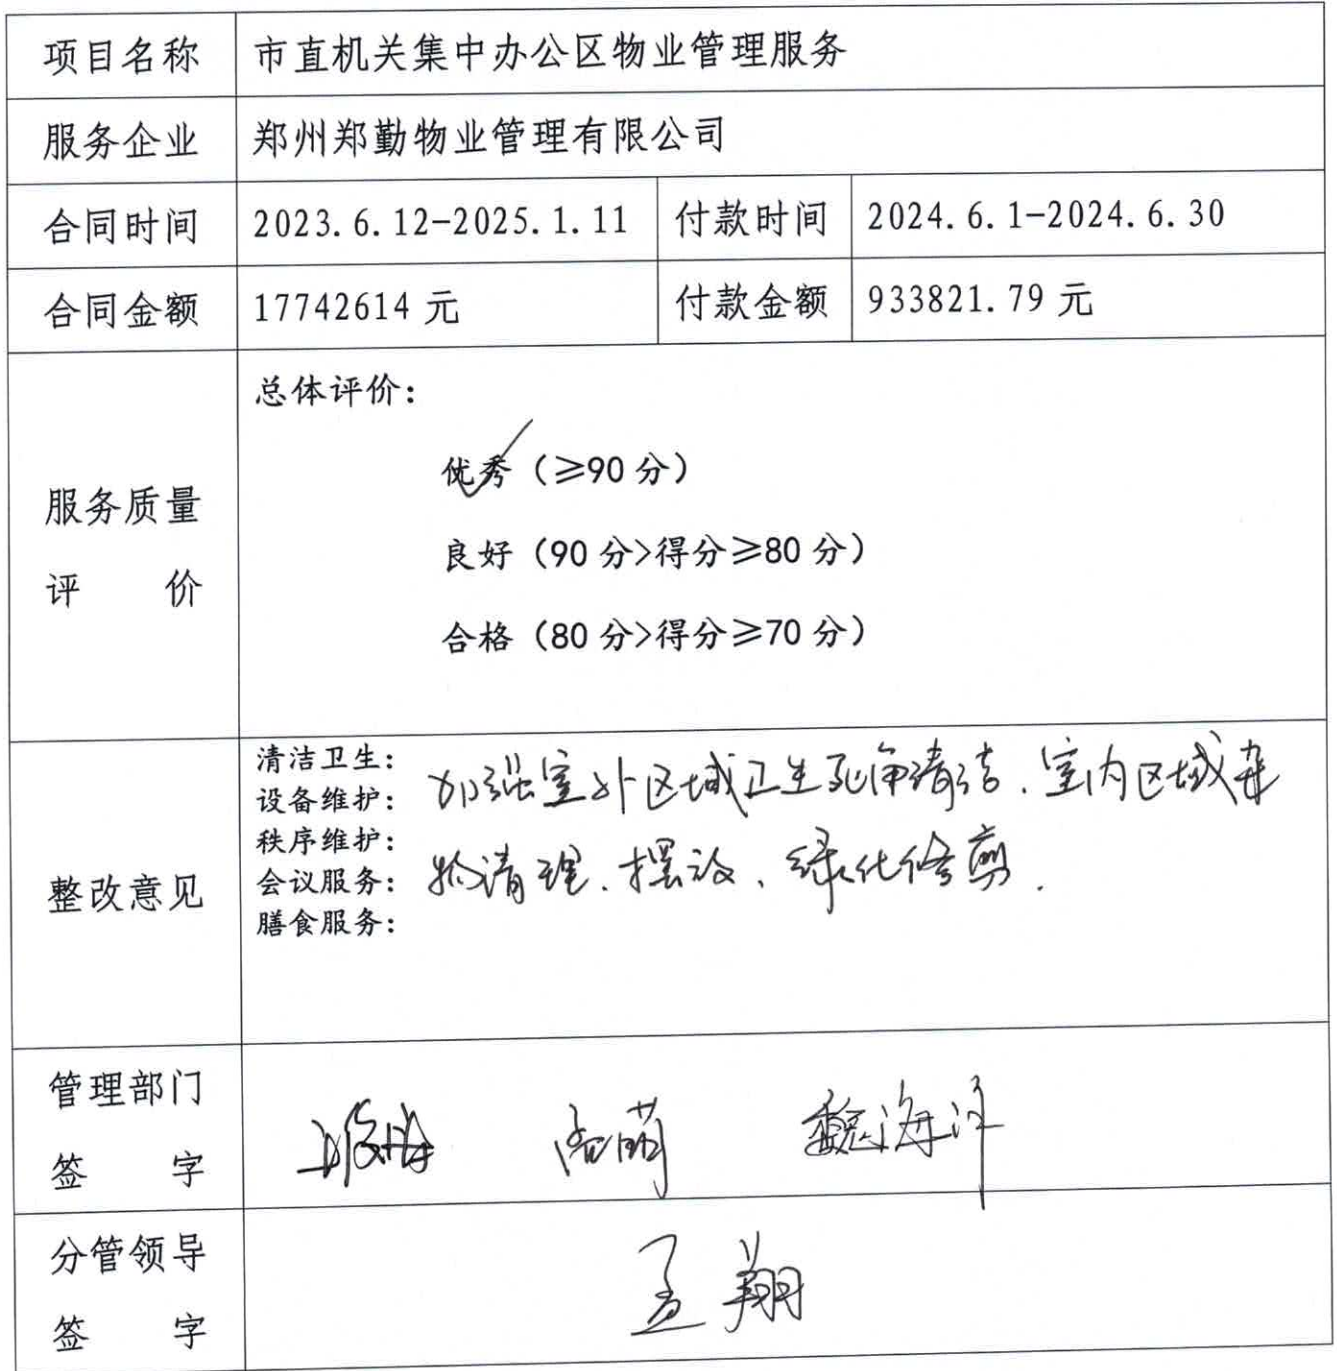 项目名称 市直机关集中办公区物业管理服务
服务企业 郑州郑勤物业管理有限公司
合同时间 2023.6.12-2025.1.11 付款时间 2024.6.1-2024.6.30
合同金额 17742614 元 付款金额 933821.79 元
服务质量
评 价
总体评价：
优秀（≥90 分）
良好（90 分>得分≥80 分）
合格（80 分>得分≥70 分）
整改意见
清洁卫生：
设备维护：
秩序维护：
会议服务：
膳食服务：
加强室外区域卫生死角清洁、室内区域杂
物清理、摆放、绿化修剪.
管理部门
签 字
魏海洋
分管领导
签 字
孟翔